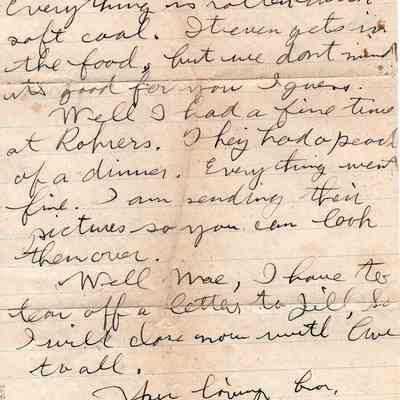 Everything is rotten with
soft coal. It even gets in
the food, but we dont mind
its good for you I guess.
Well I had a fine time
at Rohrers. They had a peach
of a dinner. Everything went
fine. I am sending their
pictures so you can look
them over.
Well Mae, I have to
tear off a letter to Jill, so
I will close now with love
to all.
Your loving bro,